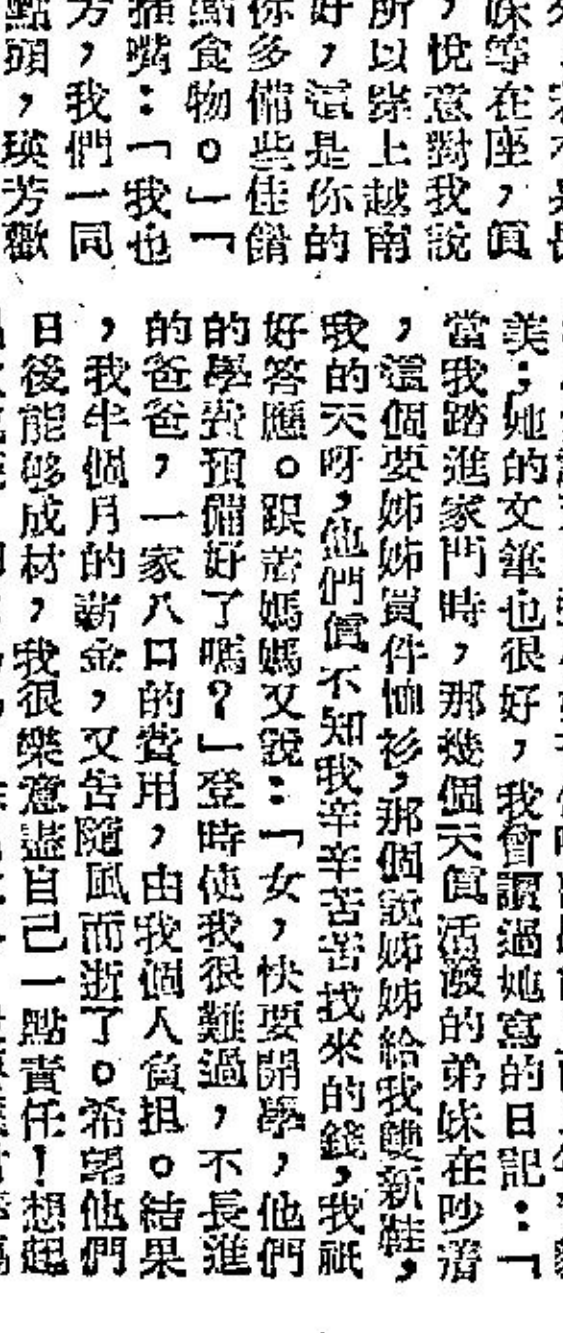 妹等在座,眞
,悅意對我說
所以踩上越南
好,這是你的
你多備些佳餚
點食物。」「
插嘴:「我也
,我們一同
點頭,瑛芳歡
美;她的文筆也很好,我曾讀過她寫的日記:「
當我踏進家門時,那幾個天眞活潑的弟妹在吵着
,這個要姊姊買件恤衫,那個說姊姊給我雙新鞋,
我的天呀,他們眞不知我辛辛苦苦找來的錢,我祇
好答應。跟着媽媽又說:「女,快要開學,他們
的學費預備好了嗎?」登時使我很難過,不長進
的爸爸,一家八口的費用,由我個人負担。結果
,我半個月的薪金,又告隨風而逝了。希望他們
日後能够成材,我很樂意盡自己一點責任!想起